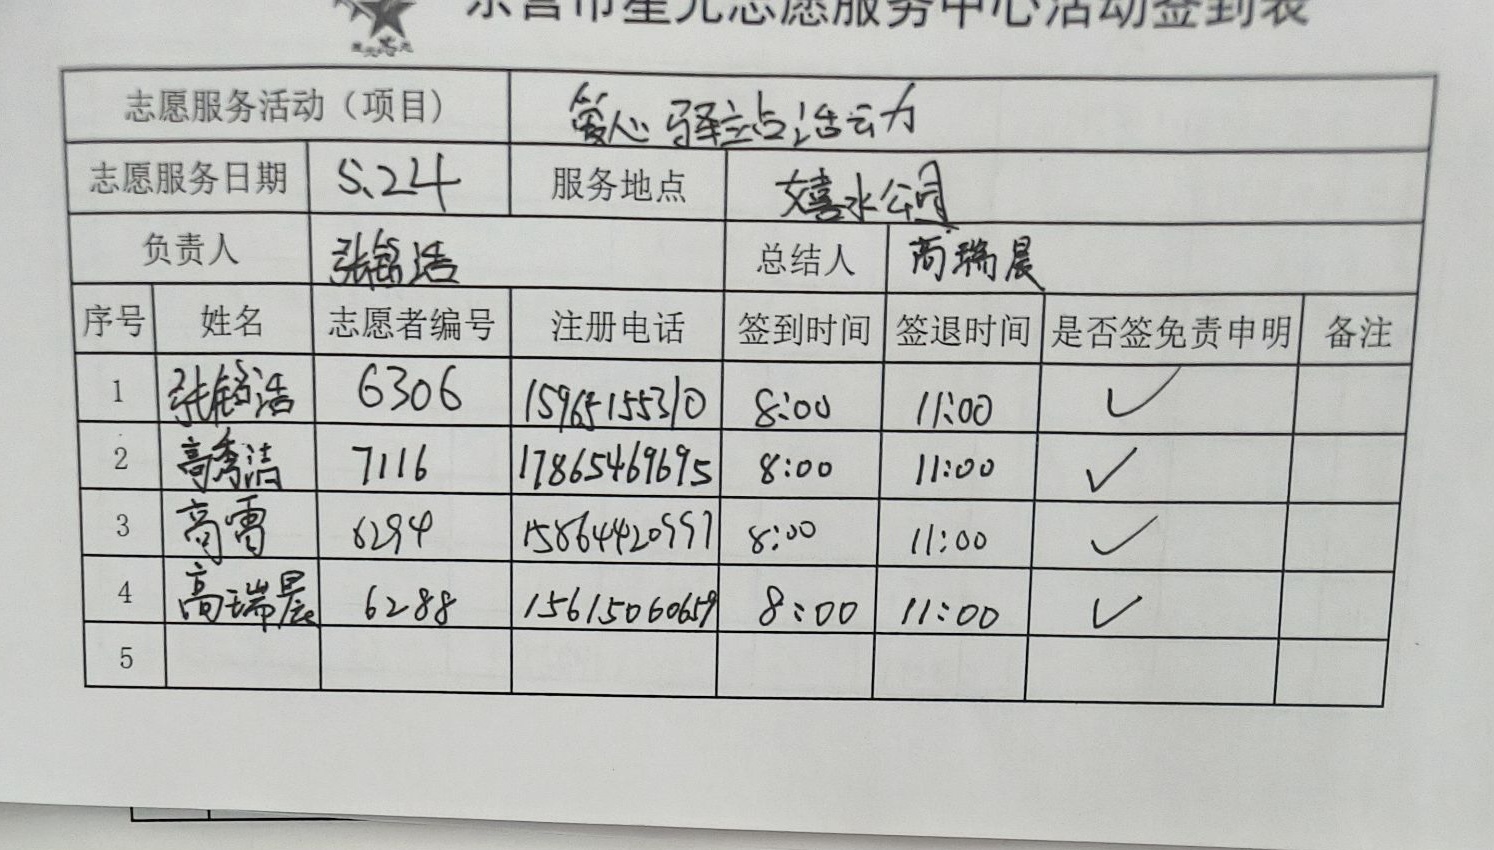 东营市星光志愿服务中心活动签到表
志愿服务活动（项目） 爱心驿站活动
志愿服务日期 5.24 服务地点 嬉水公司
负责人 张铭浩 总结人 高瑞晨
序号 姓名 志愿者编号 注册电话 签到时间 签退时间 是否签免责申明 备注
1 张铭浩 6306 15965155310 8:00 11:00 ✓
2 高秀洁 7116 17865469695 8:00 11:00 ✓
3 高雷 6294 15864420997 8:00 11:00 ✓
4 高瑞晨 6288 15615060659 8:00 11:00 ✓
5